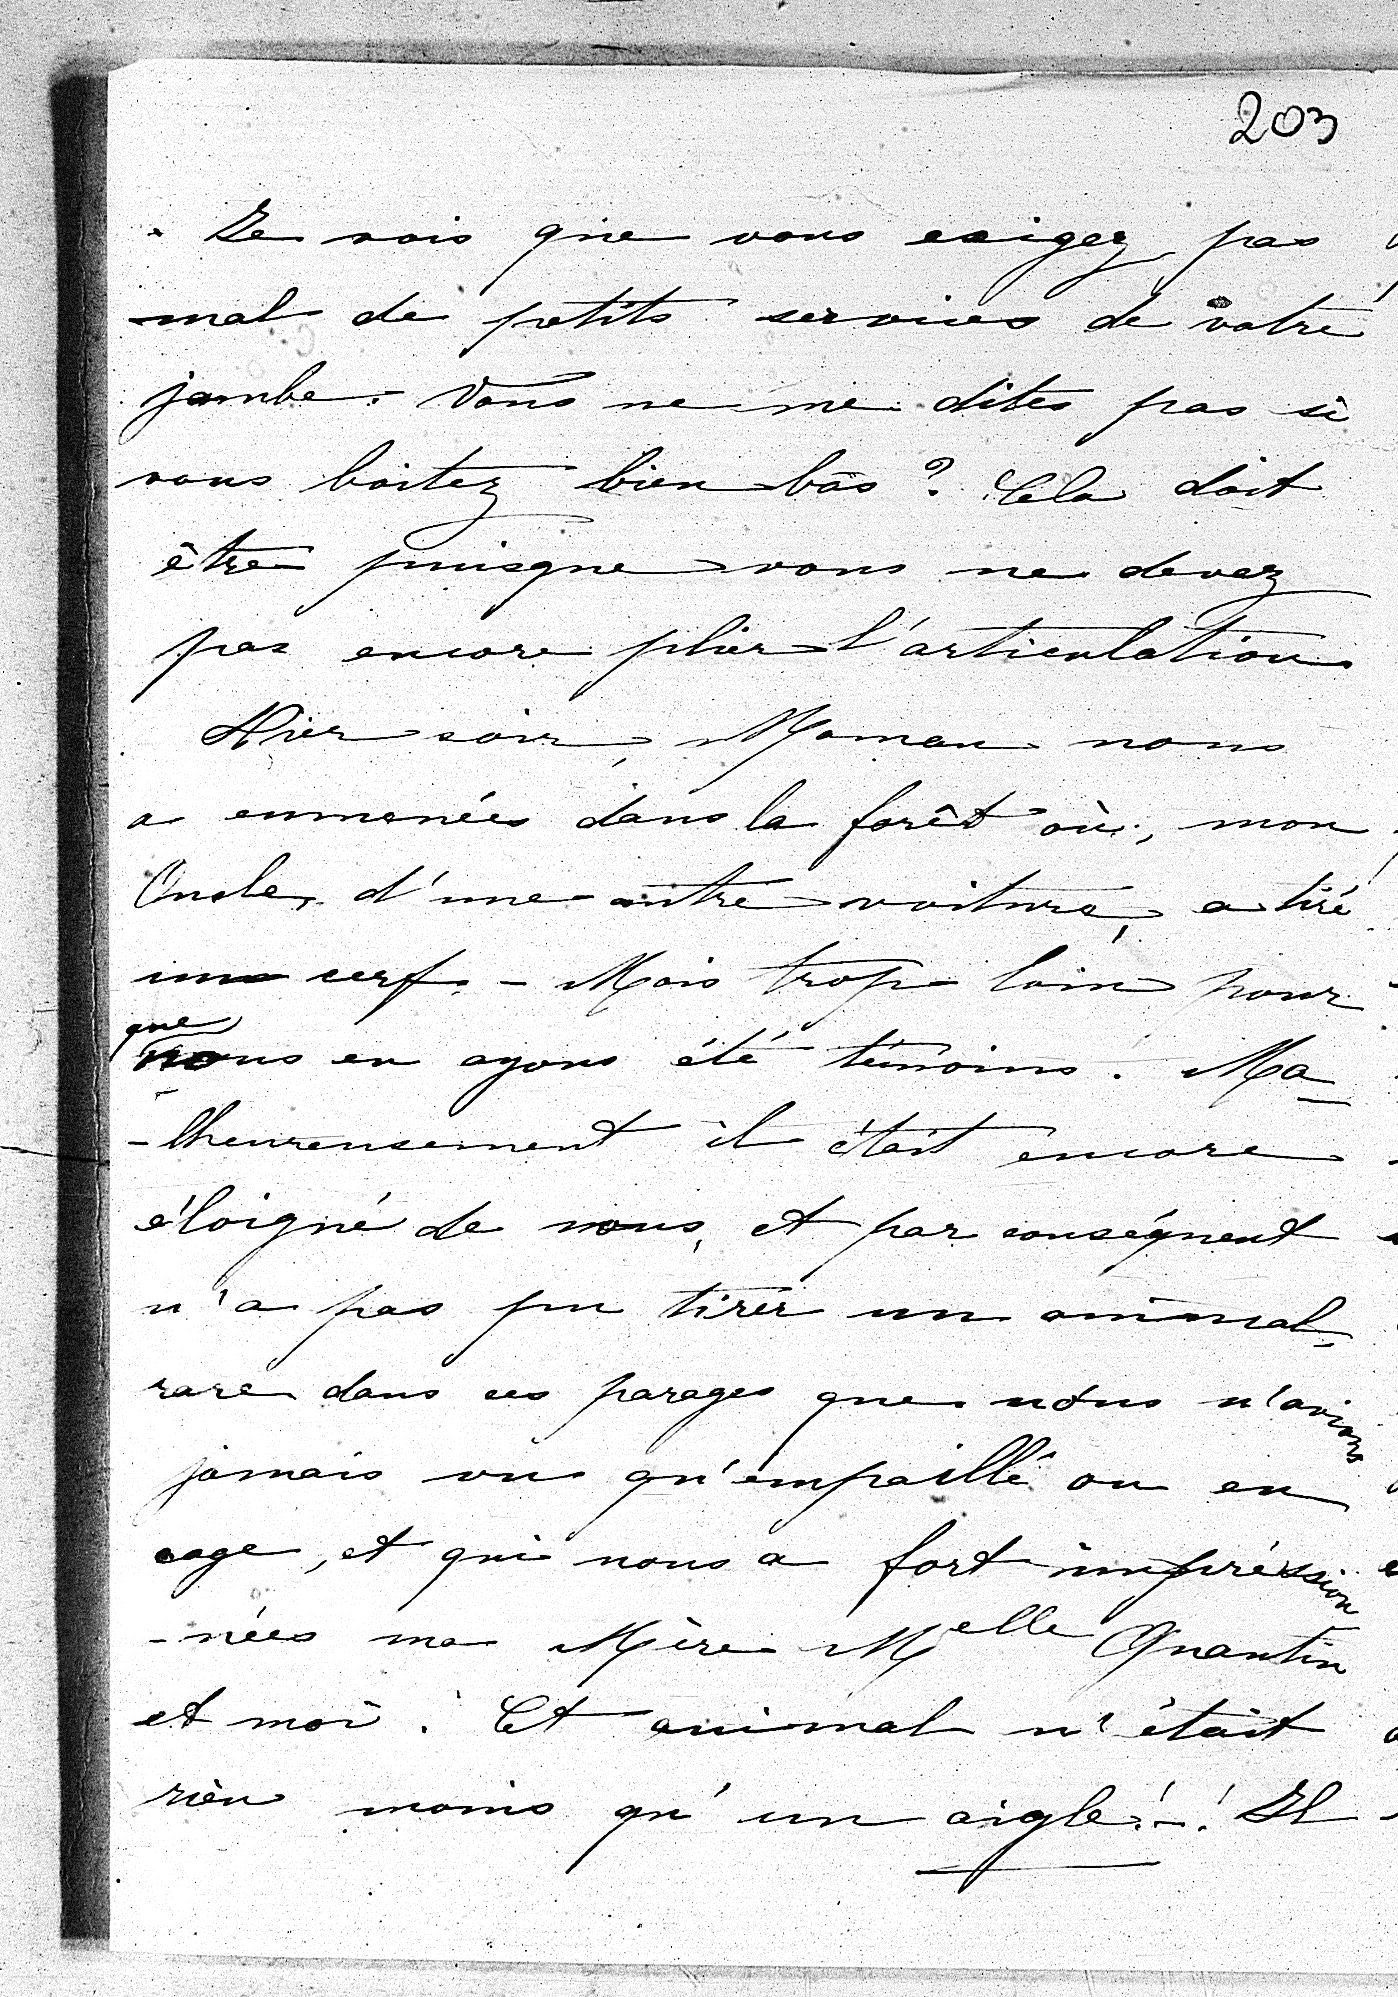 203
Je vois que vous exigez pas
mal de petits services de votre
jambe. - Vous ne me dites pas si
vous boitez bien bas ? Cela doit
être puisque vous ne devez
pas encore plier l'articulation.
Hier soir, Maman nous
a emmenées dans la forêt où, mon
Oncle, d'une autre voiture, a tiré
un cerf. - Mais trop loin pour
que
nous en ayons été témoins. Ma-
-lheureusement il était encore
éloigné de nous, et par conséquent
n'a pas pu tirer un animal,
rare dans ces parages que nous n'avions
jamais vu qu'empaillé ou en
cage, et qui nous a fort impression
-nées ma Mère Melle Quantin
et moi. Cet animal n'était
rien moins qu'un aigle!-! Il